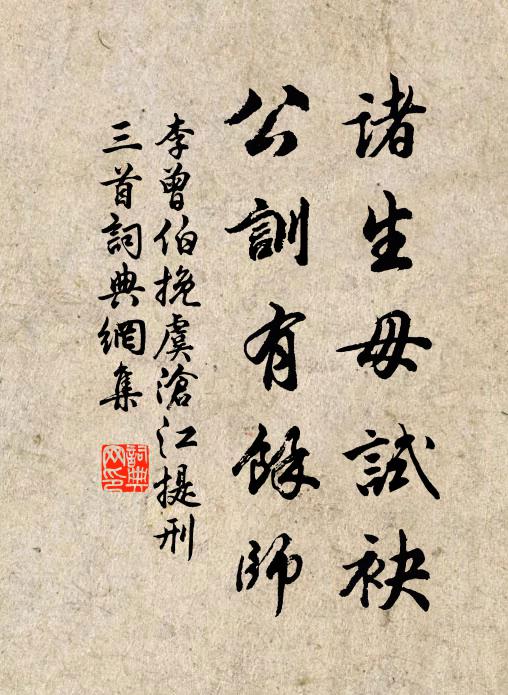 諸生毋試袂
公訓有餘師
李曾伯挽虞滄江提刑
三首詞典網集
詞典網印